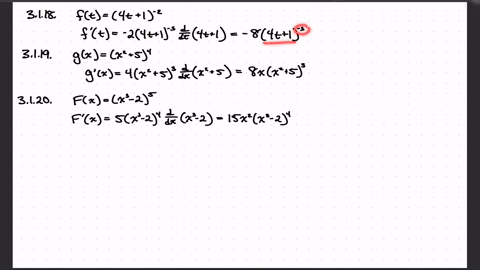 3.1.18. f(t) = (4t+1)⁻²
f'(t) = -2(4t+1)⁻³ d/dt (4t+1) = -8(4t+1)⁻³
3.1.19. g(x) = (x²+5)⁴
g'(x) = 4(x²+5)³ d/dx (x²+5) = 8x(x²+5)³
3.1.20. F(x) = (x³-2)⁵
F'(x) = 5(x³-2)⁴ d/dx (x³-2) = 15x²(x³-2)⁴